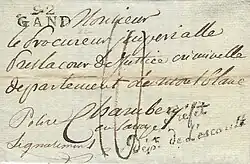 92
GAND
Monsieur
Le procureur imperialle
Pres la cour de Justice criminelle
departement du mont blanc
Chambery
en Savoye
Police
Signalement